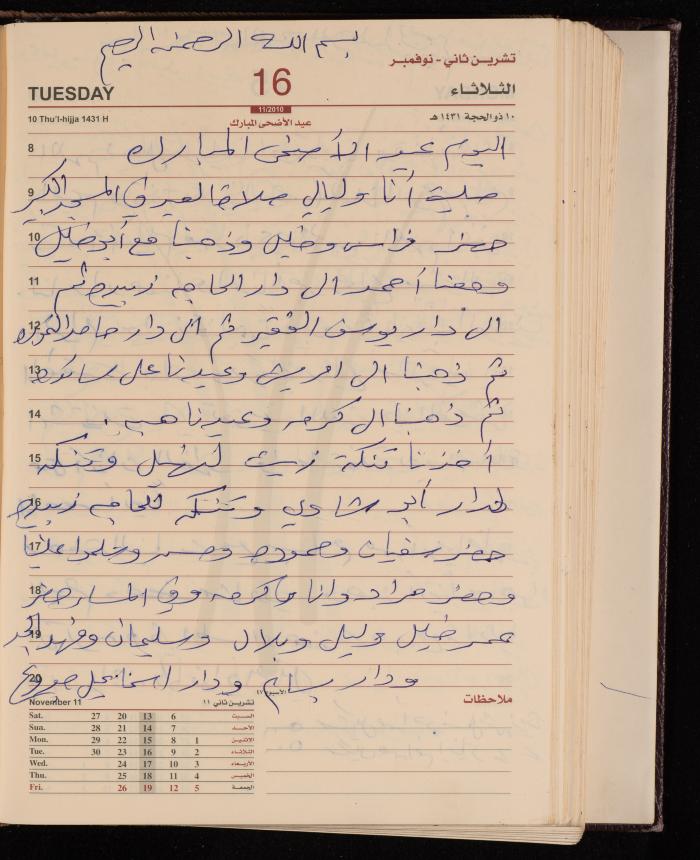 بسم الله الرحمن الرحيم
تشرين ثاني - نوفمبر
TUESDAY 16 الثلاثاء
11/2010
10 Thu'l-hijja 1431 H عيد الأضحى المبارك ١٠ ذو الحجة ١٤٣١ هـ
8 اليوم عيد الأضحى المبارك
9 صليت أنا وليال صلاة العيد في المسجد الكبير
10 حضر فراس وخليل وذهبنا مع أبو خليل
11 ومعنا أحمد الى دار الحاجه زبيده ثم
12 الى دار يوسف الفقير ثم الى دار حامد
13 ثم ذهبنا الى وعيدنا على
14 ثم ذهبنا الى كرمه وعيدنا
15 أخذنا تنكة زيت وتنكه
16 لدار أبو شادي وتنكه للحاجه زبيده
17 حضر سفيان وحموده وسلموا علينا
18 وحضر مراد وانا وفي المساء حضر
19 عمر خليل وليل وبلال وسليمان وفهد
20 ودار بسام ودار اسماعيل
November 11 تشرين ثاني ١١ ملاحظات
Sat. 27 20 13 6 السبت
Sun. 28 21 14 7 الأحد
Mon. 29 22 15 8 1 الاثنين
Tue. 30 23 16 9 2 الثلاثاء
Wed. 24 17 10 3 الأربعاء
Thu. 25 18 11 4 الخميس
Fri. 26 19 12 5 الجمعة